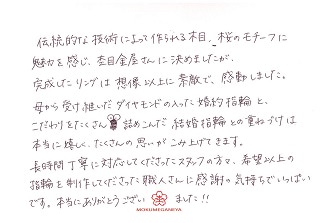 伝統的な技術によって作られる木目、桜のモチーフに
魅力を感じ、杢目金屋さんに決めましたが、
完成したリングは想像以上に素敵で、感動しました。
母から受け継いだダイヤモンドの入った婚約指輪と、
こだわりをたくさん詰めこんだ結婚指輪との重ねづけは
本当に嬉しく、たくさんの思いがこみ上げてきます。
長時間丁寧に対応してくださったスタッフの方々、希望以上の
指輪を制作してくださった職人さんに感謝の気持ちでいっぱい
です。本当にありがとうございました!!
MOKUMEGANEYA